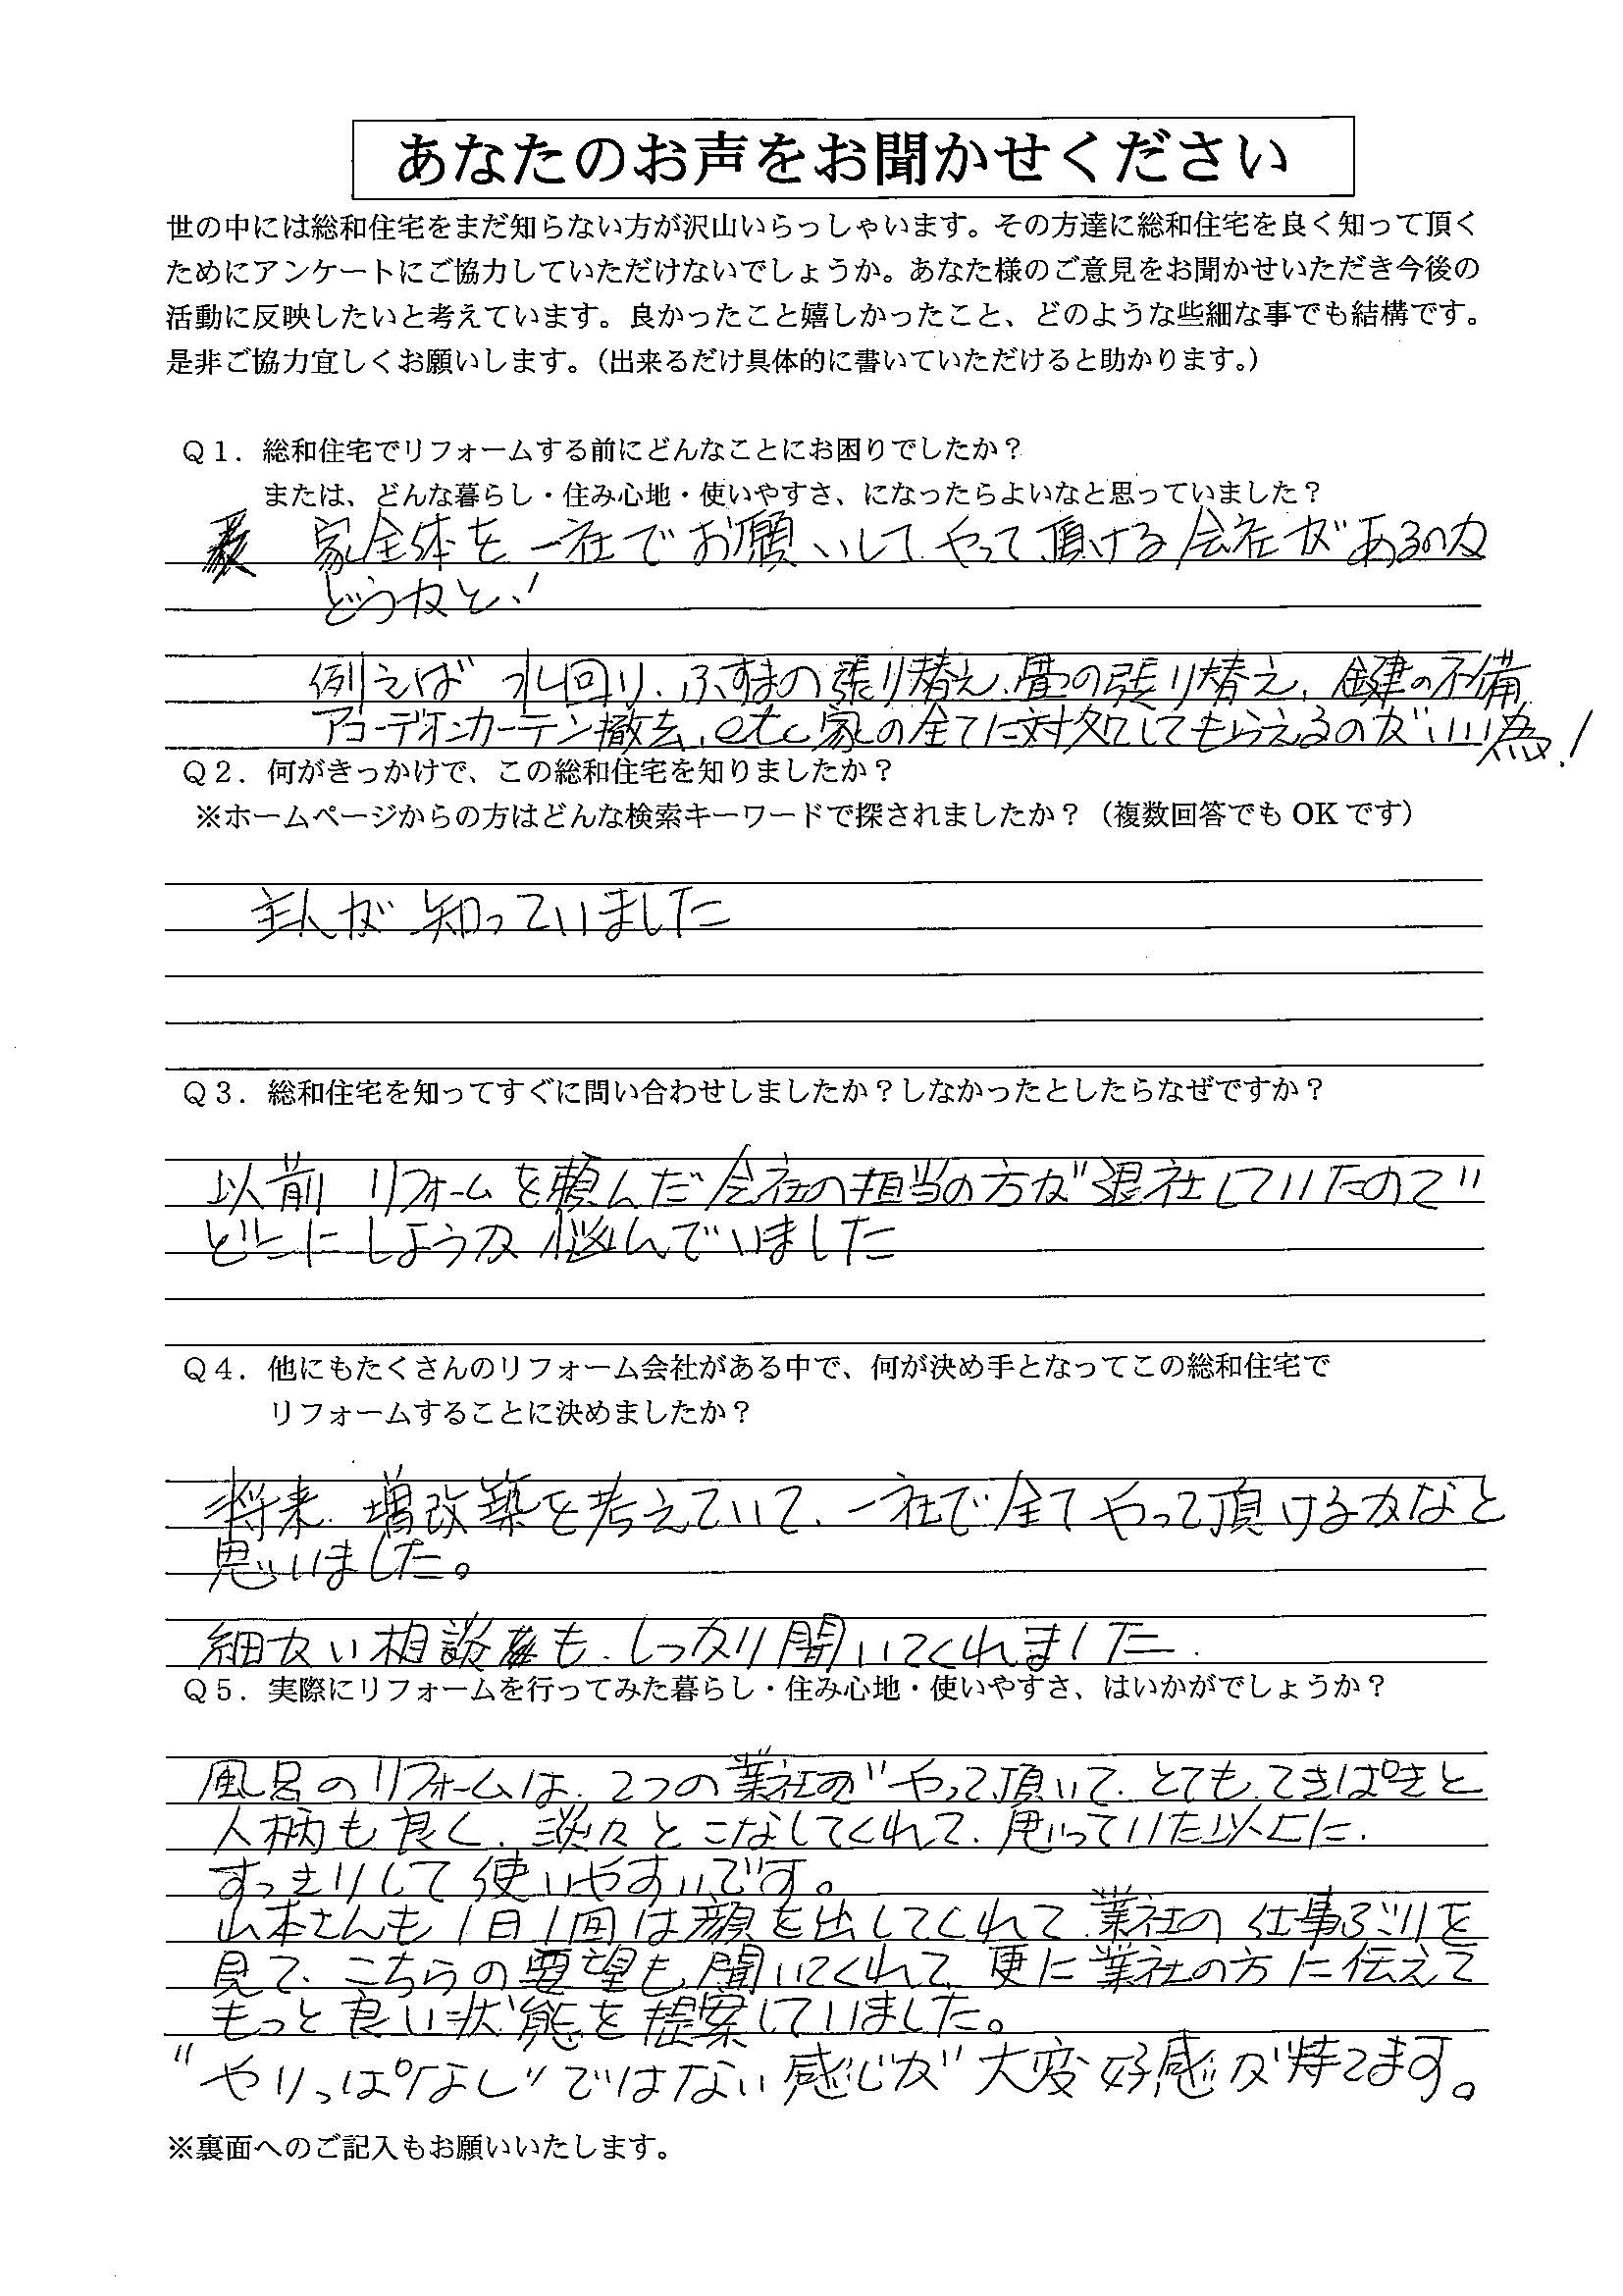 あなたのお声をお聞かせください
世の中には総和住宅をまだ知らない方が沢山いらっしゃいます。その方達に総和住宅を良く知って頂く
ためにアンケートにご協力していただけないでしょうか。あなた様のご意見をお聞かせいただき今後の
活動に反映したいと考えています。良かったこと嬉しかったこと、どのような些細な事でも結構です。
是非ご協力宜しくお願いします。（出来るだけ具体的に書いていただけると助かります。）
Ｑ１．総和住宅でリフォームする前にどんなことにお困りでしたか？
または、どんな暮らし・住み心地・使いやすさ、になったらよいなと思っていました？
家全体を一社でお願いしてやって頂ける会社があるのか
どうかと、！
例えば 水回り、ふすまの張り替え、畳の張り替え、鍵の不備、
アコーデオンカーテン撤去、etc 家の全てに対処してもらえるのがいい為！
Ｑ２．何がきっかけで、この総和住宅を知りましたか？
※ホームページからの方はどんな検索キーワードで探されましたか？（複数回答でも OK です）
主人が知っていました
Ｑ３．総和住宅を知ってすぐに問い合わせしましたか？しなかったとしたらなぜですか？
以前 リフォームを頼んだ会社の担当の方が退社していたので
どこにしようか悩んでいました
Ｑ４．他にもたくさんのリフォーム会社がある中で、何が決め手となってこの総和住宅で
リフォームすることに決めましたか？
将来、増改築を考えていて、一社で全てやって頂けるかなと
思いました。
細かい相談も、しっかり聞いてくれました、
Ｑ５．実際にリフォームを行ってみた暮らし・住み心地・使いやすさ、はいかがでしょうか？
風呂のリフォームは、２つの業社がやって頂いて、とても、てきぱきと
人柄も良く、淡々とこなしてくれて、思っていた以上に、
すっきりして使いやすいです。
山本さんも１日１回は顔を出してくれて、業社の仕事ぶりを
見て、こちらの要望も聞いてくれて、更に業社の方に伝えて
もっと良い状態を提案していました。
“やりっぱなし”ではない感じが大変好感が持てます。
※裏面へのご記入もお願いいたします。